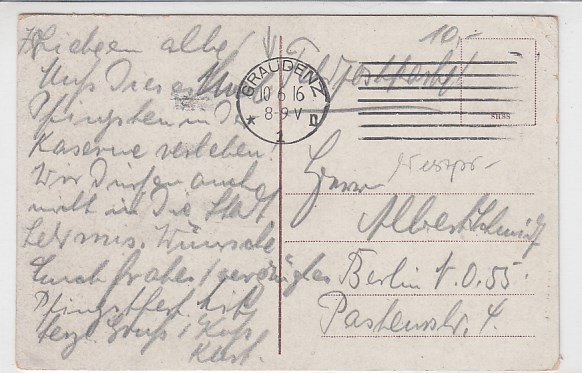 Ihr lieben alle!
Muß dieses
Pfingsten in der
Kaserne verleben.
Wir dürfen auch
nicht in die Stadt
Wünsche
Euch frohes / vergnügtes
Pfingstfest.
herzl. Gruß & Kuß
Kurt.
10,-
Feldpostkarte
GRAUDENZ
10 6 16
8-9 V
* 1 n
SHSS
Westpr-
Herrn
Albert Schmidt
Berlin N.O.55.
Pasteurstr. 4.